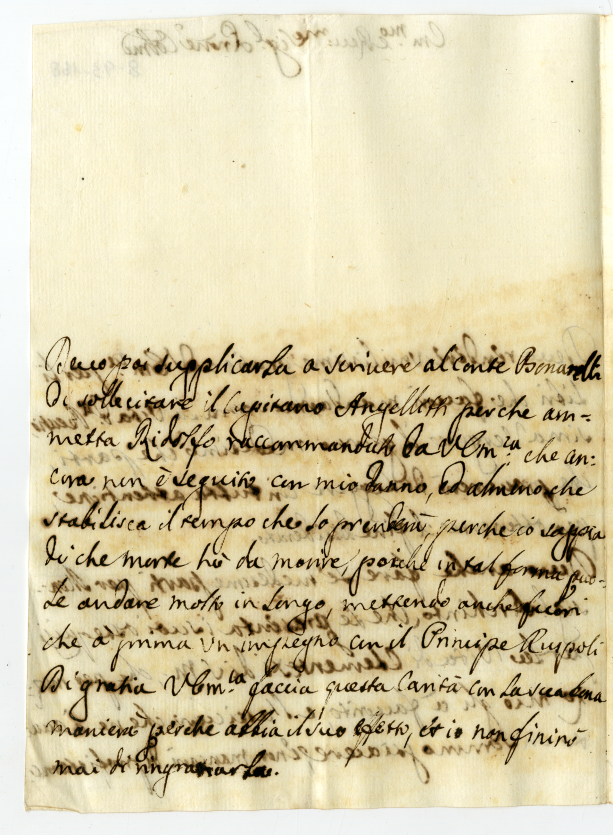 Devo poi supplicarla a scrivere al Conte Bonarelli
di sollecitare il Capitano Angelletti perche am=
metta Ridolfo raccommandato da VEm.za che an=
cora non è seguito con mio danno, ed almeno che
stabilisca il tempo che lo prenderà, perche io sappia
di che morte hò da morire, poiche in tal forma puo=
le andare molto in longo, mettendo anche fuori
che a prima un impegno con il Principe Ruspoli
Di gratia VEm.za faccia questa Carità con la sua bona
maniera perche abbia il suo effetto, et io non finirò
mai di ringratiarla.